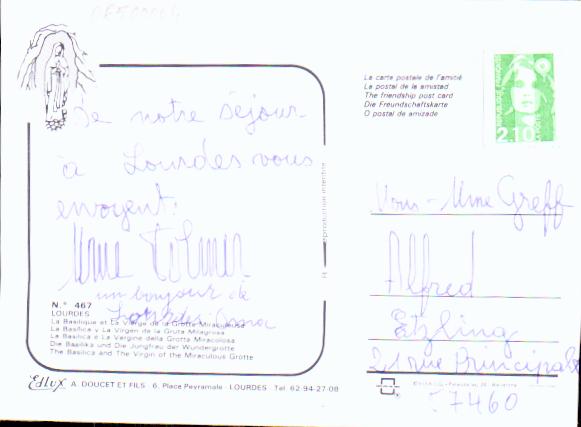 De notre séjour
à Lourdes vous
envoyent:
Mme
un bonjour de
N.° 467
LOURDES
La Basilique et La Vierge de la Grotte Miraculeuse
La Basilica y La Virgen de la Gruta Milagrosa
La Basilica e La Vergine della Grotta Miracolosa
Die Basilika und Die Jungfrau der Wundergrotte
The Basilica and The Virgin of the Miraculous Grotte
Edlux A. DOUCET ET FILS - 6, Place Peyramale - LOURDES - Tel. 62-94-27-08
reproduction interdite
La carte postale de l'amitié
La postal de la amistad
The friendship post card
Die Freundschaftskarte
O postal de amizade
2,10
Mme Greff
Alfred
Etzling
21 rue Principale
57460